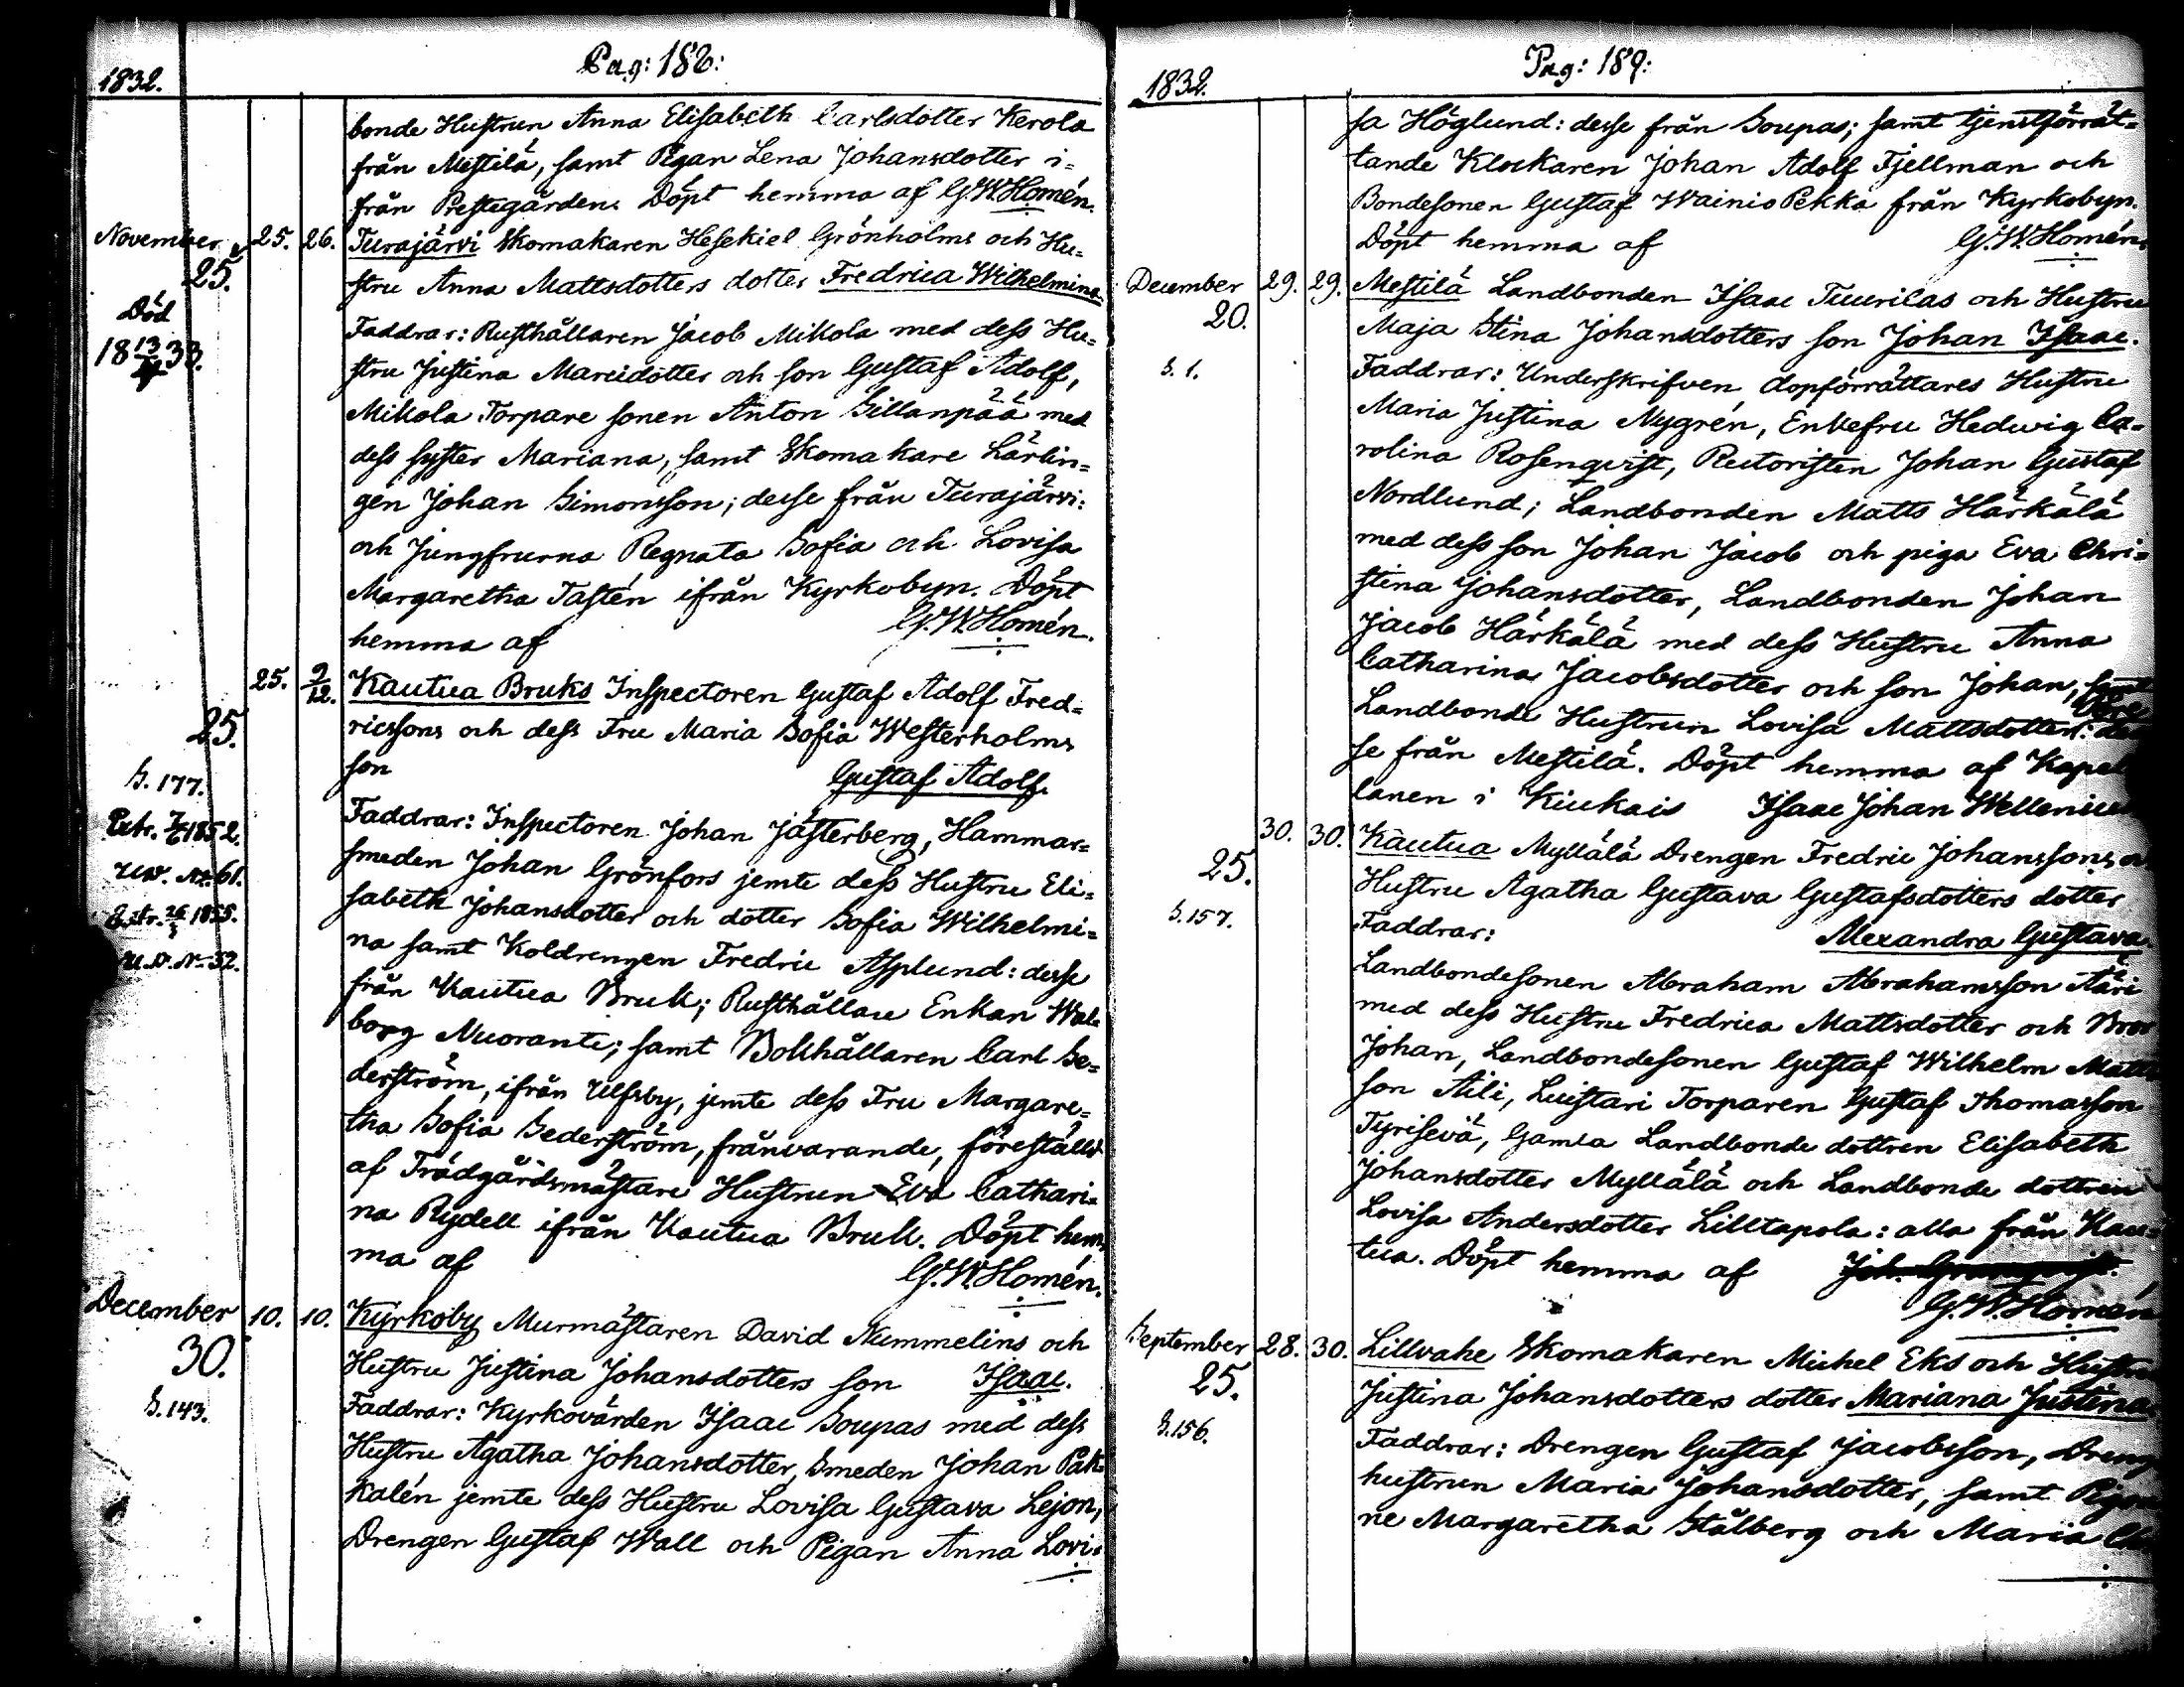 Pag: 188:
1832.
bonde Hustrun Anna Elisabeth Carlsdotter Kerola
från Mestilä, samt Pigan Lena Johansdotter i=
från Prestegården. Döpt hemma af G.W.Homén.
November 25. 26. Turajärvi Skomakaren Hesekiel Grönholms och Hu=
25. stru Anna Mattsdotters dotter Fredrica Wilhelmina.
Död
18 13 33. Faddrar: Rusthållaren Jacob Mikola med dess Hu=
stru Justina Marcidotter och son Gustaf Adolf,
Mikola Torpare sonen Anton Sillanpää med
dess syster Mariana, samt Skomakare Lärlin=
gen Johan Simonsson; desse från Turajärvi:
och Jungfrurna Regnata Sofia och Lovisa
Margaretha Tastén ifrån Kyrkobyn. Döpt
hemma af G.W.Homén.
25. 9/12. Kautua Bruks Inspectoren Gustaf Adolf Fred=
25. ricssons och dess Fru Maria Sofia Westerholms
S. 177. son Gustaf Adolf.
1852. Faddrar: Inspectoren Johan Jästerberg, Hammar=
No 61. smeden Johan Grönfors jemte dess Hustru Eli=
1855. sabeth Johansdotter och dotter Sofia Wilhelmi=
No 52. na samt Koldrengen Fredric Asplund: desse
från Kautua Bruk; Rusthållare Enkan Wal=
borg Nuoranti; samt Bokhållaren Carl Se=
derström, ifrån Ulfsby, jemte dess Fru Margare=
tha Sofia Sederström, frånvarande, föreställd
af Trädgårdsmästare Hustrun Eva Cathari=
na Rydell ifrån Kautua Bruk. Döpt hem=
ma af G.W.Homén.
December 10. 10. Kyrkoby Murmästaren David Nummelins och
30. Hustru Justina Johansdotters son Isaac.
S. 143. Faddrar: Kyrkovärden Isaac Soupas med dess
Hustru Agatha Johansdotter, Smeden Johan Pak=
kalén jemte dess Hustru Lovisa Gustava Lejon,
Drengen Gustaf Wall och Pigan Anna Lovi=
Pag: 189:
1832.
sa Höglund: desse från Soupas; samt tjenstförrät=
tande Klockaren Johan Adolf Fjellman och
Bondesonen Gustaf Wainio Pekka från Kyrkobyn.
Döpt hemma af G.W.Homén.
December 29. 29. Mestilä Landbonden Isaac Tuurilas och Hustru
20. Maja Stina Johansdotters son Johan Isaac.
S. 1. Faddrar: Underskrifven dopförrättares Hustru
Maria Justina Nygrén, Enkefru Hedwig Ca=
rolina Rosenqvist, Rectoristen Johan Gustaf
Nordlund; Landbonden Matts Härkälä
med dess son Johan Jacob och piga Eva Chri=
stina Johansdotter, Landbonden Johan
Jacob Härkälä med dess Hustru Anna
Catharina Jacobsdotter och son Johan,
Landbonde Hustrun Lovisa Mattsdotter: des
se från Mestilä. Döpt hemma af Kapel
lanen i Kiukais Isaac Johan Wellenius
30. 30. Kautua Myllälä Drengen Fredric Johanssons
25. Hustru Agatha Gustava Gustafsdotters dotter
S. 157. Faddrar: Alexandra Gustava
Landbondesonen Abraham Abrahamsson Ääri
med dess Hustru Fredrica Mattsdotter och Bror
Johan, Landbondesonen Gustaf Wilhelm Matts
son Äili, Luistari Torparen Gustaf Thomasson
Tyrisevä, Gamla Landbonde dottren Elisabeth
Johansdotter Myllälä och Landbonde dottren
Lovisa Andersdotter Lilltapola: alla från Kau=
tua. Döpt hemma af
G.W.Homén
September 28. 30. Lillvahe Skomakaren Michel Eks och Hustru
25. Justina Johansdotters dotter Mariana Justina.
S. 156. Faddrar: Drengen Gustaf Jacobsson, Dreng
hustrun Maria Johansdotter, samt
ne Margaretha Stålberg och Maria